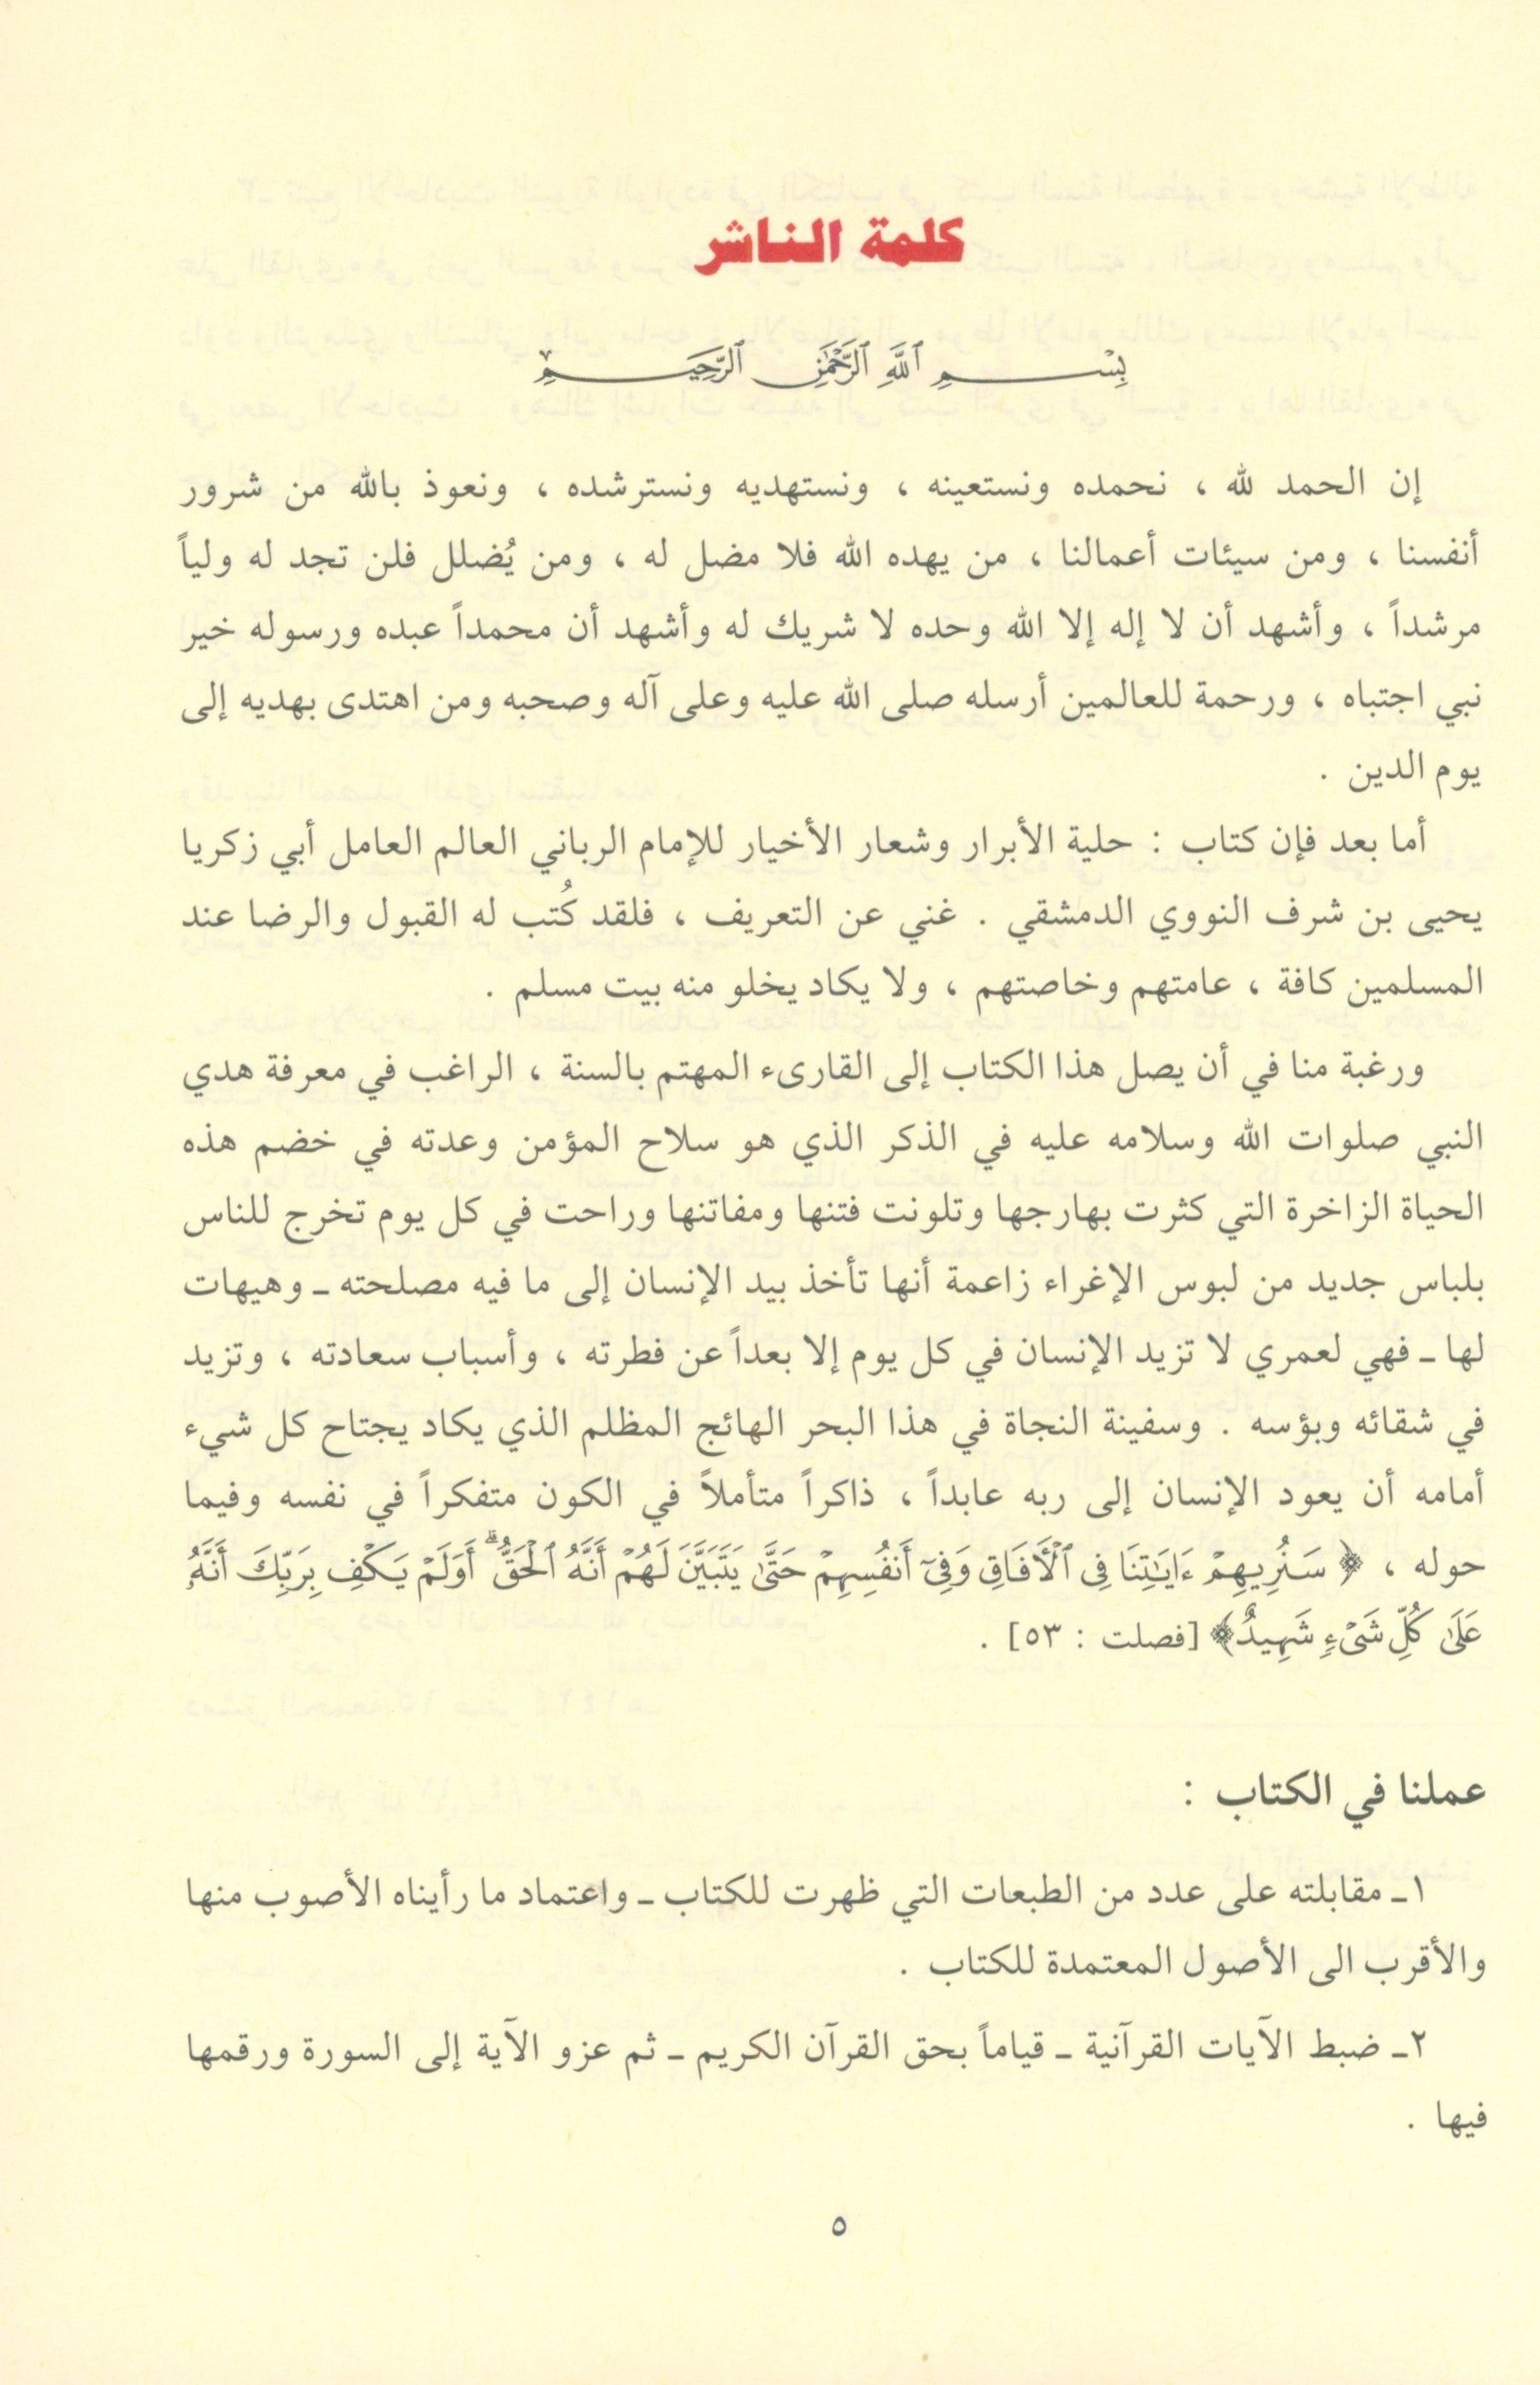 كلمة الناشر
بِسْمِ ٱللَّهِ ٱلرَّحْمَٰنِ ٱلرَّحِيمِ
إن الحمد لله ، نحمده ونستعينه ، ونستهديه ونسترشده ، ونعوذ بالله من شرور
أنفسنا ، ومن سيئات أعمالنا ، من يهده الله فلا مضل له ، ومن يُضلل فلن تجد له ولياً
مرشداً ، وأشهد أن لا إله إلا الله وحده لا شريك له وأشهد أن محمداً عبده ورسوله خير
نبي اجتباه ، ورحمة للعالمين أرسله صلى الله عليه وعلى آله وصحبه ومن اهتدى بهديه إلى
يوم الدين .
أما بعد فإن كتاب : حلية الأبرار وشعار الأخيار للإمام الرباني العالم العامل أبي زكريا
يحيى بن شرف النووي الدمشقي . غني عن التعريف ، فلقد كُتب له القبول والرضا عند
المسلمين كافة ، عامتهم وخاصتهم ، ولا يكاد يخلو منه بيت مسلم .
ورغبة منا في أن يصل هذا الكتاب إلى القارىء المهتم بالسنة ، الراغب في معرفة هدي
النبي صلوات الله وسلامه عليه في الذكر الذي هو سلاح المؤمن وعدته في خضم هذه
الحياة الزاخرة التي كثرت بهارجها وتلونت فتنها ومفاتنها وراحت في كل يوم تخرج للناس
بلباس جديد من لبوس الإغراء زاعمة أنها تأخذ بيد الإنسان إلى ما فيه مصلحته ـ وهيهات
لها ـ فهي لعمري لا تزيد الإنسان في كل يوم إلا بعداً عن فطرته ، وأسباب سعادته ، وتزيد
في شقائه وبؤسه . وسفينة النجاة في هذا البحر الهائج المظلم الذي يكاد يجتاح كل شيء
أمامه أن يعود الإنسان إلى ربه عابداً ، ذاكراً متأملاً في الكون متفكراً في نفسه وفيما
حوله ، ﴿ سَنُرِيهِمْ ءَايَٰتِنَا فِى ٱلْأَفَاقِ وَفِىٓ أَنفُسِهِمْ حَتَّىٰ يَتَبَيَّنَ لَهُمْ أَنَّهُ ٱلْحَقُّ ۗ أَوَلَمْ يَكْفِ بِرَبِّكَ أَنَّهُۥ
عَلَىٰ كُلِّ شَىْءٍ شَهِيدٌ ﴾ [فصلت : ٥٣] .
عملنا في الكتاب :
١ـ مقابلته على عدد من الطبعات التي ظهرت للكتاب ـ واعتماد ما رأيناه الأصوب منها
والأقرب الى الأصول المعتمدة للكتاب .
٢ـ ضبط الآيات القرآنية ـ قياماً بحق القرآن الكريم ـ ثم عزو الآية إلى السورة ورقمها
فيها .
٥